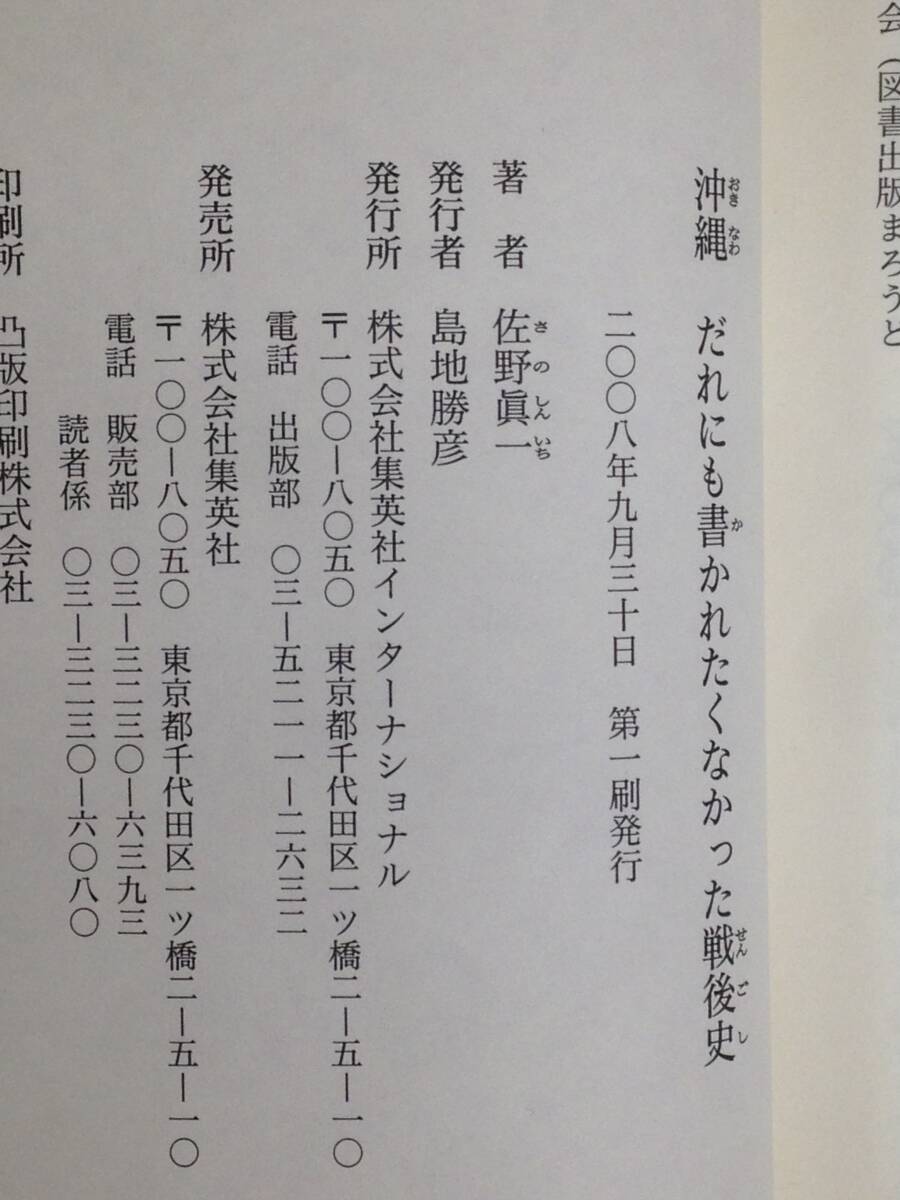 会（図書出版まろうど
沖縄　だれにも書かれたくなかった戦後史
おき なわ か せん ご し
二〇〇八年九月三十日　第一刷発行
著　者　佐野眞一
さ の しん いち
発行者　島地勝彦
発行所　株式会社集英社インターナショナル
〒一〇〇―八〇五〇　東京都千代田区一ツ橋二―五―一〇
電話　出版部　〇三―五二一一―二六三二
発売所　株式会社集英社
〒一〇〇―八〇五〇　東京都千代田区一ツ橋二―五―一〇
電話　販売部　〇三―三二三〇―六三九三
読者係　〇三―三二三〇―六〇八〇
印刷所　凸版印刷株式会社